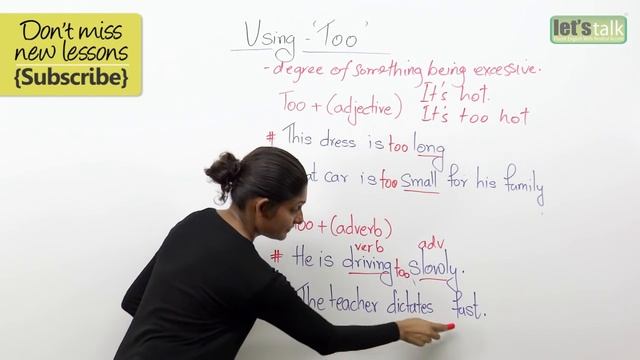 Don't miss
new lessons
{Subscribe}
let's talk
Using - 'Too'
- degree of something being excessive.
Too + (adjective) It's hot.
It's too hot
# This dress is too long
car is too small for his family
+ (adverb)
verb adv
# He is driving too slowly.
The teacher dictates fast.